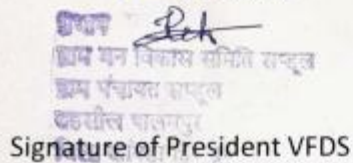 प्रधान
ग्राम वन विकास समिति सप्डूल
ग्राम पंचायत सप्डूल
तहसील पालमपुर
Signature of President VFDS